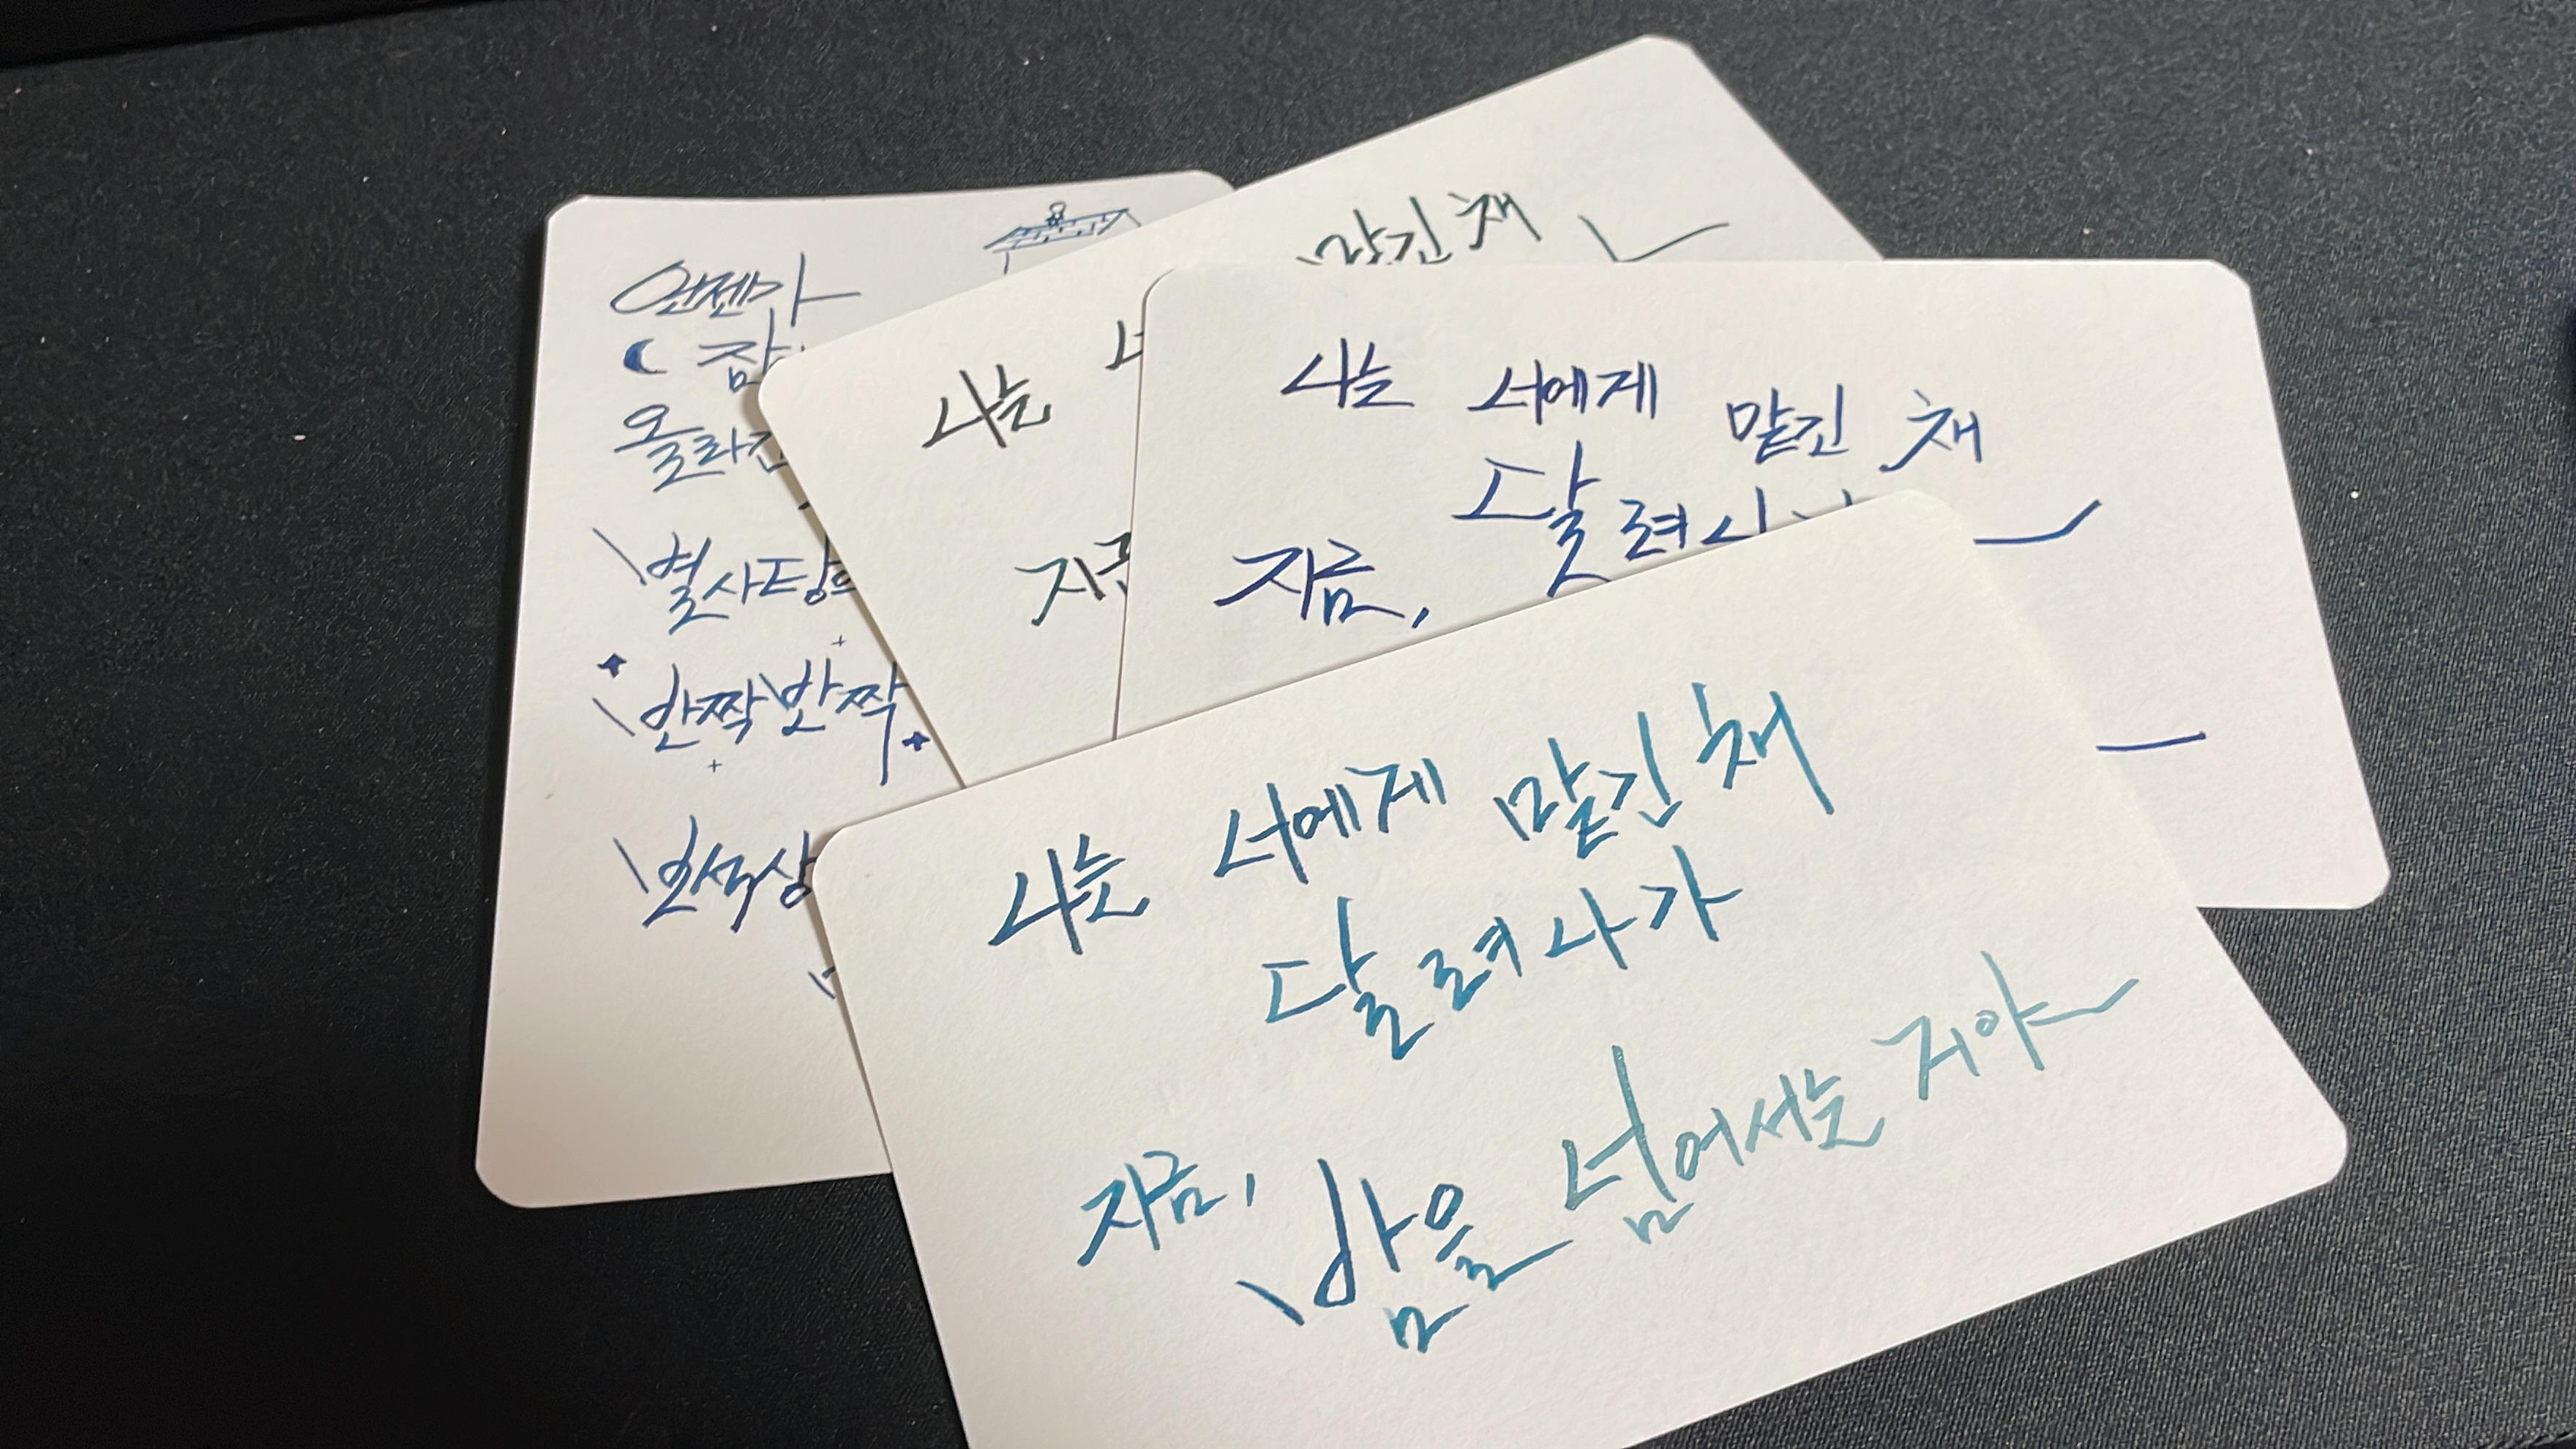 언젠가
잠
올라
별사탕
반짝반짝
보석상
맡긴 채
나는
지금
나는 너에게 맡긴 채
달려
지금,
나는 너에게 맡긴 채
달려 나가
지금, 밤을 넘어서는 거야